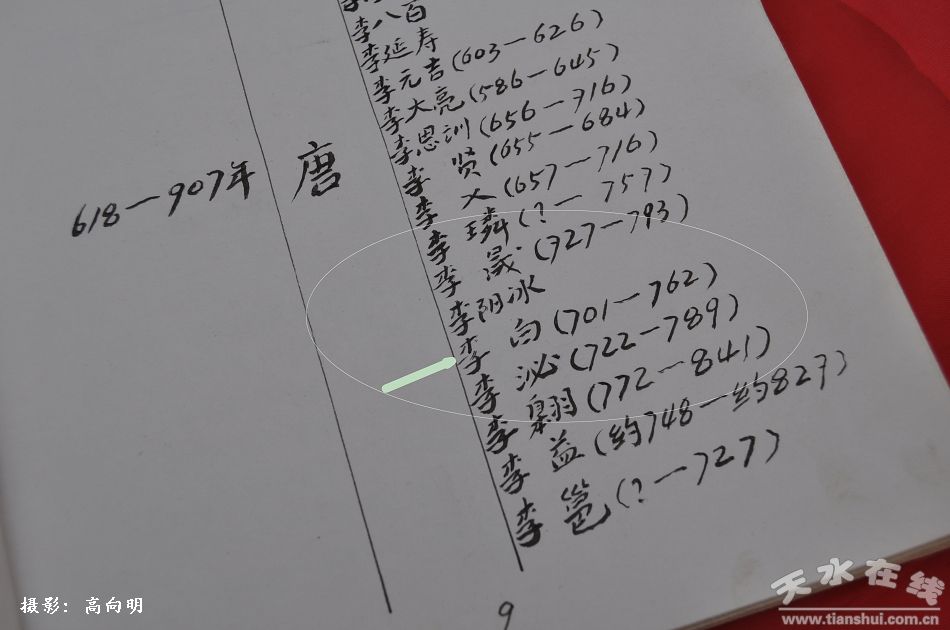 李八百
李延寿
李元吉(603—626)
李大亮(586—645)
李思训(656—716)
李贤(655—684)
李乂(657—716)
李璘(?—757)
李晟(727—793)
李阳冰
李白(701—762)
李泌(722—789)
李翱(772—841)
李益(约748—约827)
李邕(?—727)
618—907年
唐
9
摄影: 高向明
天水在线
www.tianshui.com.cn